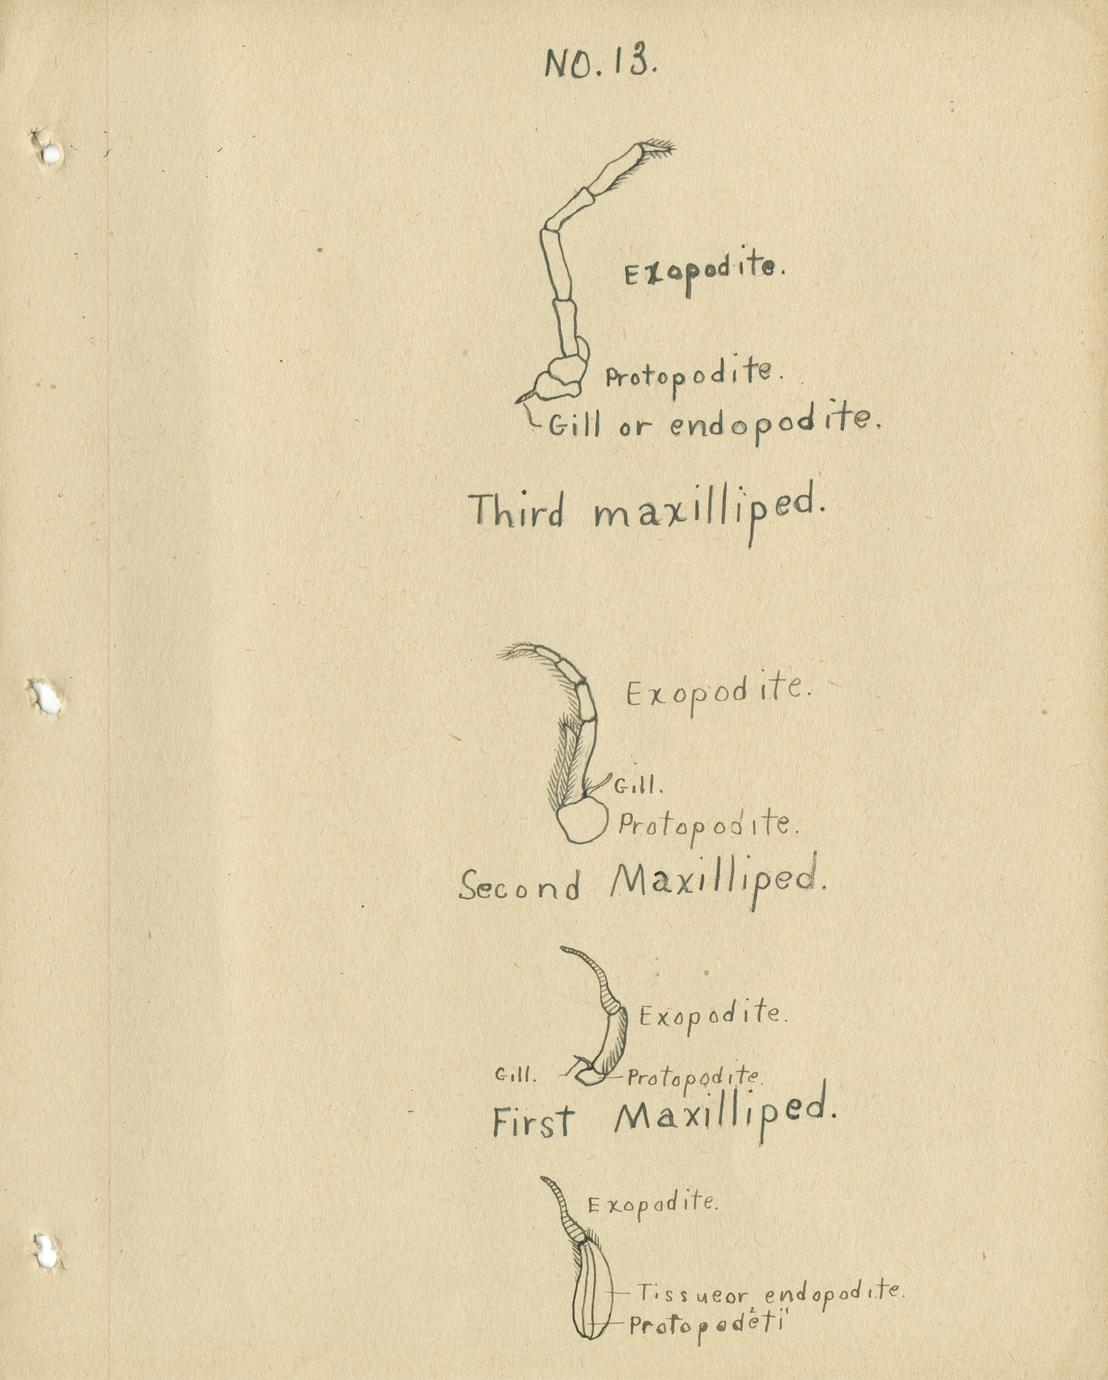 NO. 13.
Exopodite.
Protopodite.
Gill or endopodite.
Third maxilliped.
Exopodite.
Gill.
Protopodite.
Second Maxilliped.
Exopodite.
Gill.
Protopodite.
First Maxilliped.
Exopodite.
Tissueor endopodite.
Protopodeti